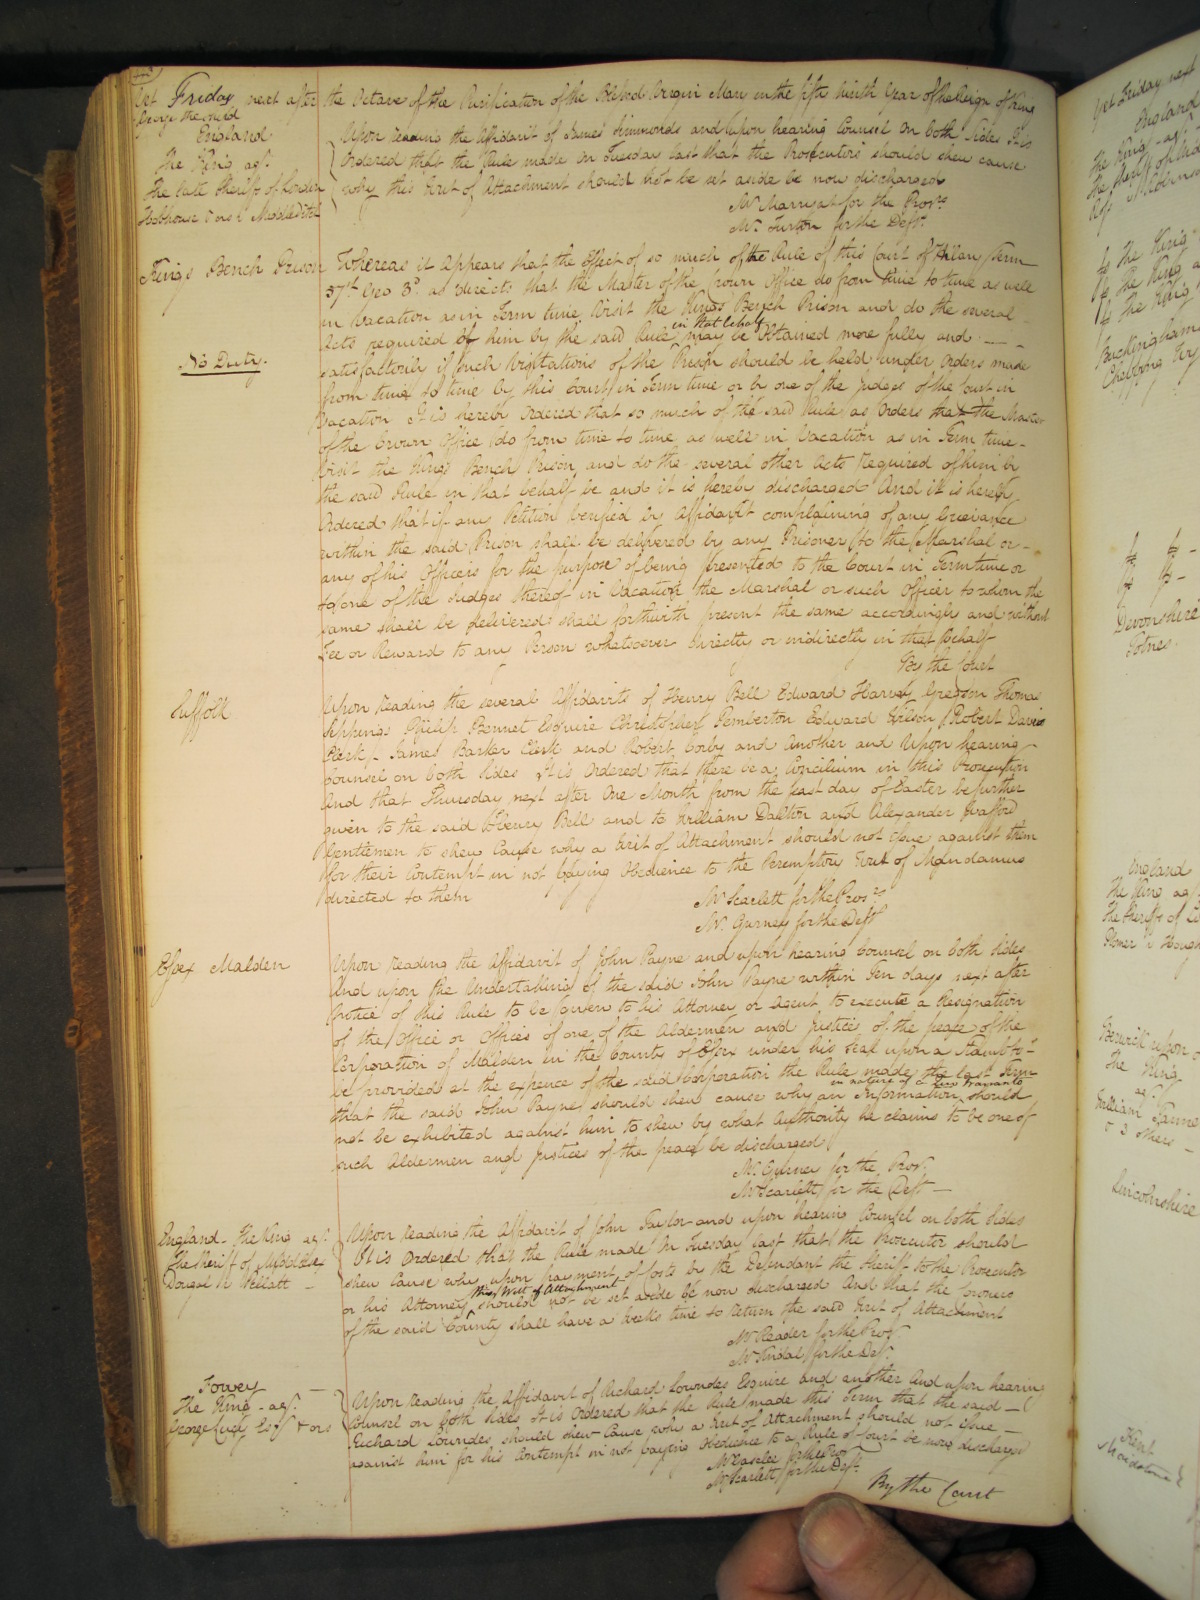 Yet Friday next after the Octave of the Purification of the Blessed Virgin Mary in the fifty ninth Year of the Reign of King
George the third
England
The King agt.
The late Sheriff of London
Hobhouse v
Upon reading the Affidavit of James Simmonds and upon hearing Counsel on both Sides It is
Ordered that the Rule made on Tuesday last that the Prosecutors should shew cause
why this Writ of Attachment should not be set aside be now discharged
Mr. Marryat for the Prors.
Mr. Turton for the Deft.
Kings Bench Prison
No Duty.
Whereas it appears that the Effect of so much of the Rule of this Court of Hilary Term
37th. Geo 3d. as directs that the Master of the Crown Office do from time to time as well
in Vacation as in Term time Visit the Kings Bench Prison and do the several
Acts required of him by the said Rule in that behalf may be Obtained more fully and
satisfactorily if such Visitations of the Prison should be held under Orders made
from time to time by this Court in Term time or by one of the Judges of the Court in
Vacation It is hereby Ordered that so much of the said Rule as Orders that the Master
of the Crown Office do from time to time as well in Vacation as in Term time
Visit the Kings Bench Prison and do the several other Acts required of him by
the said Rule in that behalf be and it is hereby discharged And it is hereby
Ordered that if any Petition verified by Affidavit complaining of any Grievance
within the said Prison shall be delivered by any Prisoner to the Marshal or
any of his Officers for the purpose of being presented to the Court in Term time or
to one of the Judges thereof in Vacation the Marshal or such Officer to whom the
same shall be delivered shall forthwith present the same accordingly and without
Fee or Reward to any Person whatsoever directly or indirectly in that behalf
By the Court
Suffolk
Upon reading the several Affidavits of Henry Bell Edward Harvey Gregson Thomas
Sippings Philip Bennet Esquire Christopher Pemberton Edward Wilson Robert Davis
Clerk James Barker Clerk and Robert Corby and Another and Upon hearing
Counsel on both sides It is Ordered that there be a Concilium in this Prosecution
And that Thursday next after One Month from the last day of Easter be further
given to the said Henry Bell and to William Dalton and Alexander
Gentlemen to shew Cause why a Writ of Attachment should not issue against them
for their Contempt in not paying Obedience to the Peremptory Writ of Mandamus
directed to them
Mr. Scarlett for the Prors.
Mr. Gurney for the Deft
Essex Malden
Upon reading the Affidavit of John Payne and upon hearing Counsel on both sides
And upon the Undertaking of the said John Payne within Ten days next after
Notice of this Rule to be given to his Attorney or Agent to execute a Resignation
of the Office or Offices of one of the Aldermen and Justices of the peace of the
Corporation of Malden in the County of Essex under his Seal upon a Stamp to
be provided at the expence of the said Corporation the Rule made the last Term
that the said John Payne should shew cause why an Information in nature of a Quo Warranto should
not be exhibited against him to shew by what Authority he claims to be one of
such Aldermen and Justices of the peace be discharged
Mr. Gurney for the Pror.
Mr. Scarlett for the Deft
England The King agt.
The Sheriff of Middlesex
Dougal v Kellatt
Upon reading the Affidavit of John Taylor and upon hearing Counsel on both sides
It is Ordered that the Rule made On Tuesday last that the Prosecutor should
shew Cause why upon payment of Costs by the Defendant the Sheriff to the Prosecutor
or his Attorney this Writ of Attachment should not be set aside be now discharged And that the Coroners
of the said County shall have a weeks time to return the said Writ of Attachment
Mr. Reader for the Pror.
Mr. Tindal for the Deft.
Fowey
The King agt.
George Lucy Esqr. & ors
Upon reading the Affidavit of Richard Lowndes Esquire and another And upon hearing
Counsel on both sides It is Ordered that the Rule made this Term that the said
Richard Lowndes should shew Cause why a Writ of Attachment should not issue
against him for his Contempt in not paying Obedience to a Rule of Court be now discharged
Mr. Caselee for the Pror.
Mr. Scarlett for the Deft.
By the Court
Yet Friday next
England
The King agt.
The Sheriff of
The King
The King
The King
Buckinghams
Devonshire
Totnes.
England
The King agt.
The Sheriffs of
Berwick upon
The King
agt.
William
& 3 others
Lincolnshire
Kent
Maidstone